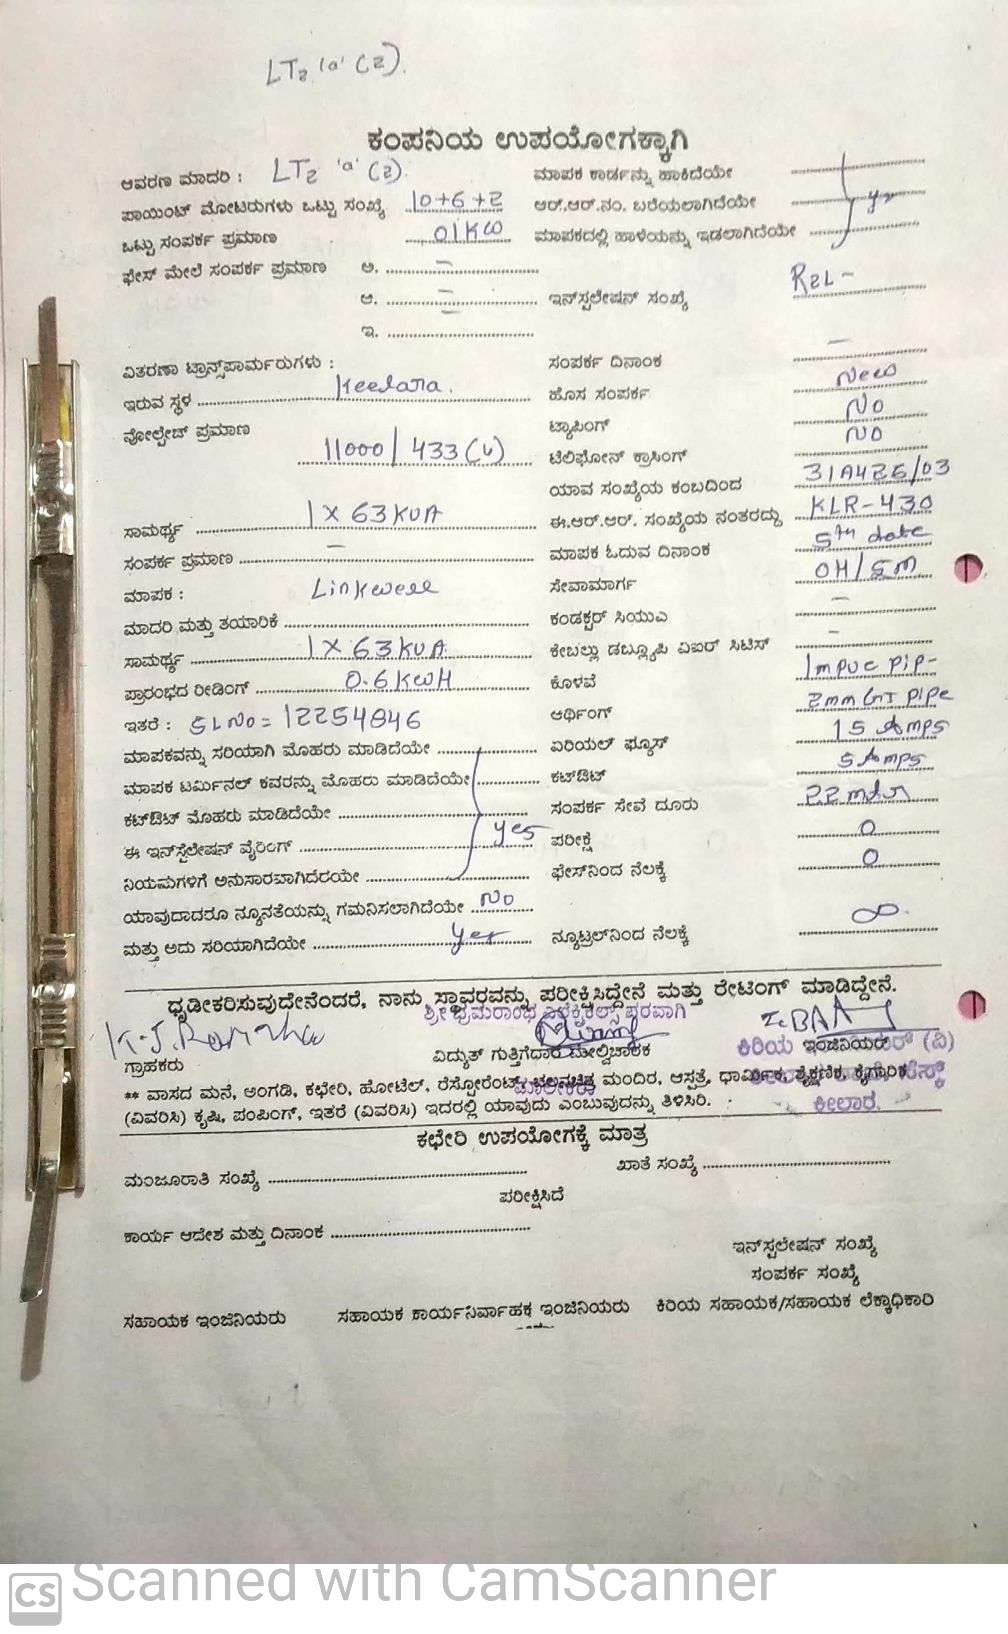 LT2 'a' (2).
ಕಂಪನಿಯ ಉಪಯೋಗಕ್ಕಾಗಿ
ಆವರಣ ಮಾದರಿ : LT2 'a' (2). ಮಾಪಕ ಕಾರ್ಡನ್ನು ಹಾಕಿದೆಯೇ
ಪಾಯಿಂಟ್ ಮೋಟರುಗಳು ಒಟ್ಟು ಸಂಖ್ಯೆ 10+6+2 ಆರ್.ಆರ್.ನಂ. ಬರೆಯಲಾಗಿದೆಯೇ yes
ಒಟ್ಟು ಸಂಪರ್ಕ ಪ್ರಮಾಣ 01KW ಮಾಪಕದಲ್ಲಿ ಹಾಳೆಯನ್ನು ಇಡಲಾಗಿದೆಯೇ
ಫೇಸ್ ಮೇಲೆ ಸಂಪರ್ಕ ಪ್ರಮಾಣ ಅ. –
ಆ. – ಇನ್ಸ್ಟಲೇಷನ್ ಸಂಖ್ಯೆ
ಇ.
ವಿತರಣಾ ಟ್ರಾನ್ಸ್‌ಪಾರ್ಮರುಗಳು : ಸಂಪರ್ಕ ದಿನಾಂಕ –
ಇರುವ ಸ್ಥಳ Keelara. ಹೊಸ ಸಂಪರ್ಕ New
ವೋಲ್ಟೇಜ್ ಪ್ರಮಾಣ 11000/433(V) ಟ್ಯಾಪಿಂಗ್ No
ಟೆಲಿಫೋನ್ ಕ್ರಾಸಿಂಗ್ NO
ಯಾವ ಸಂಖ್ಯೆಯ ಕಂಬದಿಂದ
ಸಾಮರ್ಥ್ಯ 1 X 63 KVA ಈ.ಆರ್.ಆರ್. ಸಂಖ್ಯೆಯ ನಂತರದ್ದು KLR-430
ಸಂಪರ್ಕ ಪ್ರಮಾಣ – ಮಾಪಕ ಓದುವ ದಿನಾಂಕ 5th date
ಮಾಪಕ : Linkwell ಸೇವಾಮಾರ್ಗ OH/SM
ಮಾದರಿ ಮತ್ತು ತಯಾರಿಕೆ ಕಂಡಕ್ಟರ್ ಸಿಯುಎ –
ಸಾಮರ್ಥ್ಯ 1 X 63 KVA ಕೇಬಲ್ಲು ಡಬ್ಲ್ಯೂಪಿ ಏಐರ್ ಸಿಟಿಸ್ –
ಪ್ರಾರಂಭದ ರೀಡಿಂಗ್ 0.6 KWH ಕೊಳವೆ 1m PVC PiP-
ಇತರೆ : SL No = 12254846 ಆರ್ಥಿಂಗ್ 2mm GI PIPe
ಮಾಪಕವನ್ನು ಸರಿಯಾಗಿ ಮೊಹರು ಮಾಡಿದೆಯೇ ಏರಿಯಲ್ ಫ್ಯೂಸ್ 15 Amps
ಮಾಪಕ ಟರ್ಮಿನಲ್ ಕವರನ್ನು ಮೊಹರು ಮಾಡಿದೆಯೇ ಕಟ್‌ಔಟ್ 5 Amps
ಕಟ್‌ಔಟ್ ಮೊಹರು ಮಾಡಿದೆಯೇ ಸಂಪರ್ಕ ಸೇವೆ ದೂರು
ಈ ಇನ್ಸ್ಟೆಲೇಷನ್ ವೈರಿಂಗ್ yes ಪರೀಕ್ಷೆ 0
ನಿಯಮಗಳಿಗೆ ಅನುಸಾರವಾಗಿದೆರಯೇ ಫೇಸ್‌ನಿಂದ ನೆಲಕ್ಕೆ 0
ಯಾವುದಾದರೂ ನ್ಯೂನತೆಯನ್ನು ಗಮನಿಸಲಾಗಿದೆಯೇ No
ಮತ್ತು ಅದು ಸರಿಯಾಗಿದೆಯೇ yes ನ್ಯೂಟ್ರಲ್‌ನಿಂದ ನೆಲಕ್ಕೆ ∞.
ಧೃಡೀಕರಿಸುವುದೇನೆಂದರೆ, ನಾನು ಸ್ಥಾವರವನ್ನು ಪರೀಕ್ಷಿಸಿದ್ದೇನೆ ಮತ್ತು ರೇಟಿಂಗ್ ಮಾಡಿದ್ದೇನೆ.
ಗ್ರಾಹಕರು ವಿದ್ಯುತ್ ಗುತ್ತಿಗೆದಾರ ಮೇಲ್ವಿಚಾರಕ ಕಿರಿಯ ಇಂಜಿನಿಯರ್ (ವಿ)
** ವಾಸದ ಮನೆ, ಅಂಗಡಿ, ಕಛೇರಿ, ಹೋಟೆಲ್, ರೆಸ್ಟೋರೆಂಟ್, ಚಲನಚಿತ್ರ ಮಂದಿರ, ಆಸ್ಪತ್ರೆ, ಧಾರ್ಮಿಕ, ಶೈಕ್ಷಣಿಕ, ಕೈಗಾರಿಕ
(ವಿವರಿಸಿ) ಕೃಷಿ, ಪಂಪಿಂಗ್, ಇತರೆ (ವಿವರಿಸಿ) ಇದರಲ್ಲಿ ಯಾವುದು ಎಂಬುವುದನ್ನು ತಿಳಿಸಿರಿ. ಕೀಲಾರ.
ಕಛೇರಿ ಉಪಯೋಗಕ್ಕೆ ಮಾತ್ರ
ಮಂಜೂರಾತಿ ಸಂಖ್ಯೆ ಖಾತೆ ಸಂಖ್ಯೆ
ಪರೀಕ್ಷಿಸಿದೆ
ಕಾರ್ಯ ಆದೇಶ ಮತ್ತು ದಿನಾಂಕ
ಇನ್ಸ್ಟಲೇಷನ್ ಸಂಖ್ಯೆ
ಸಂಪರ್ಕ ಸಂಖ್ಯೆ
ಸಹಾಯಕ ಇಂಜಿನಿಯರು ಸಹಾಯಕ ಕಾರ್ಯನಿರ್ವಾಹಕ ಇಂಜಿನಿಯರು ಕಿರಿಯ ಸಹಾಯಕ/ಸಹಾಯಕ ಲೆಕ್ಕಾಧಿಕಾರಿ
CS Scanned with CamScanner